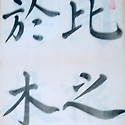 比之
於木